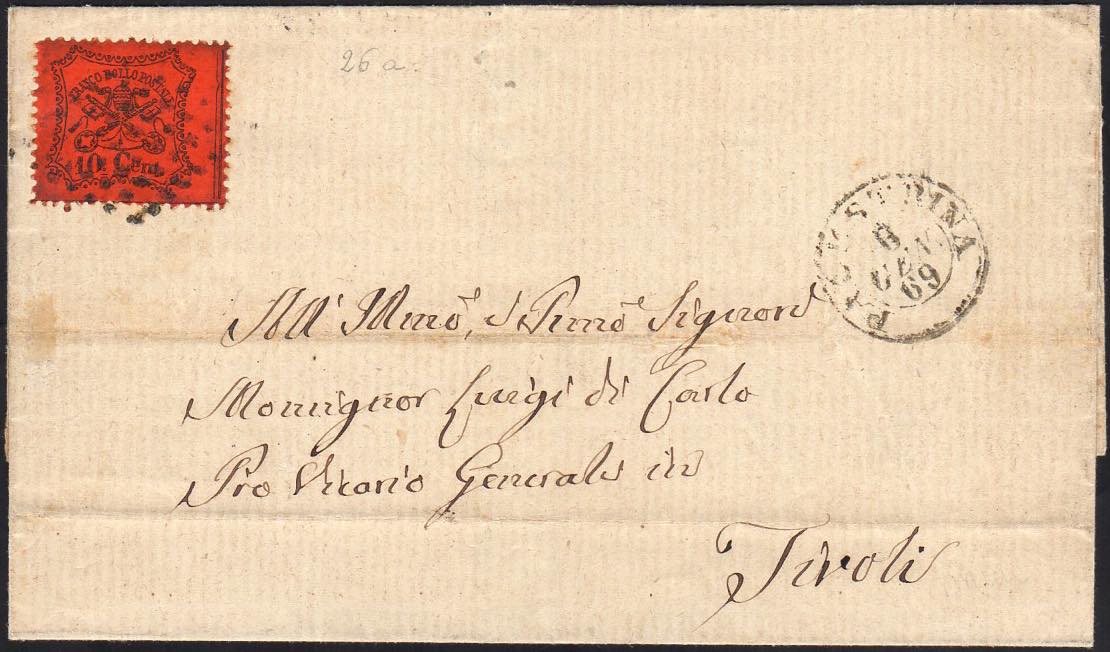 26 a.
FRANCO BOLLO POSTALE
10 Cent.
PALESTRINA
8
GEN.
69
All' Illmo, e Rmo Signore
Monsignor Luigi di Carlo
Pro Vicario Generale in
Tivoli